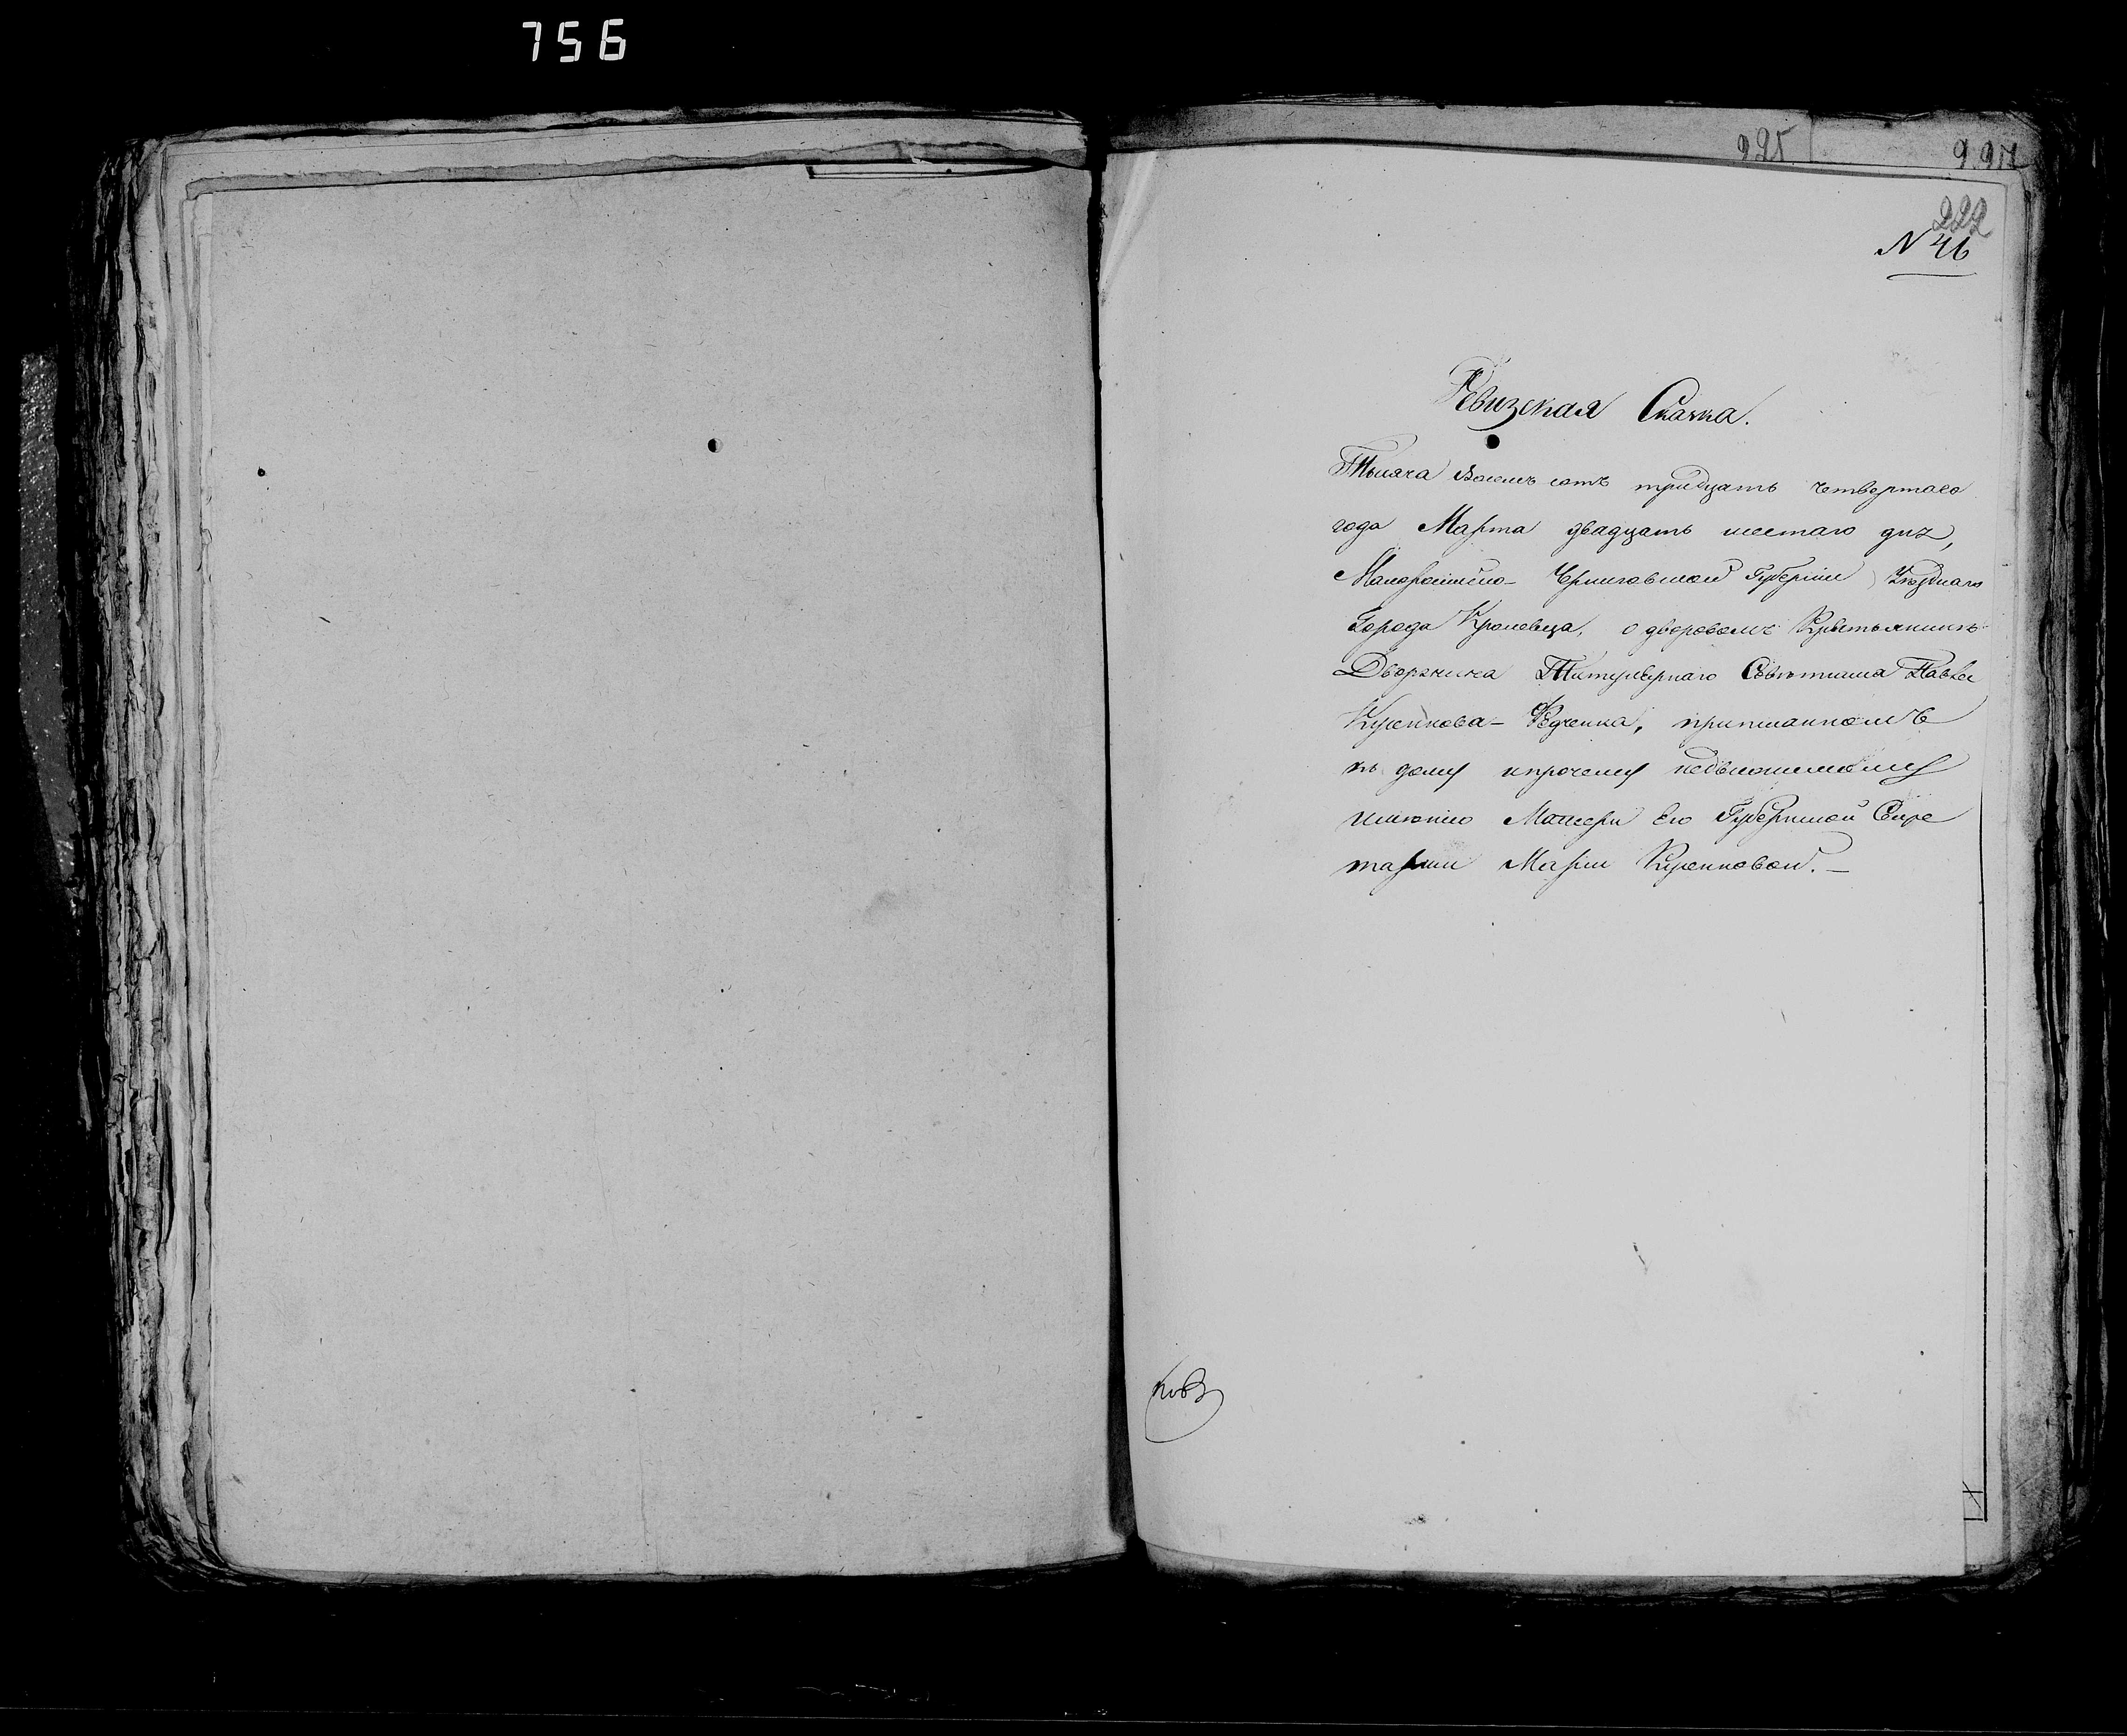 756
225
222
N 46
Ревизская Сказка.
Тысяча восемь сотъ тридцать четвертаго
года Марта двадцать шестаго дня,
Малороссійско- Черниговской Губерніи Уѣзднаго
Города Кролевца, о дворовомъ Крестьянинѣ
Дворянина Титулярнаго Совѣтника Павла
Куренкова- Федченка, приписанномъ
къ дому и прочему недвижимому
имѣнію Матери Его Губернской Секре
тарши Маріи Куренковой.-
ковъ